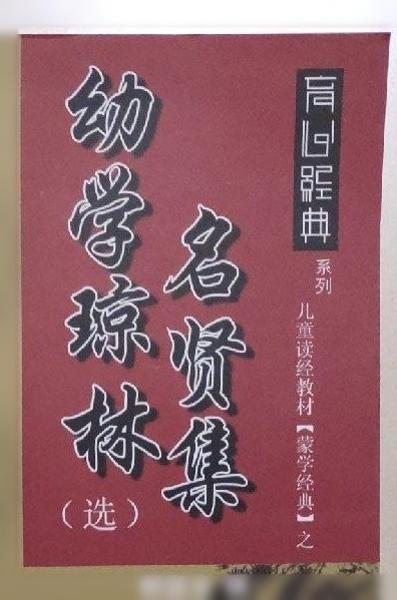 育心經典
系列
儿童读经教材【蒙学经典】之
名贤集
幼学琼林
（选）